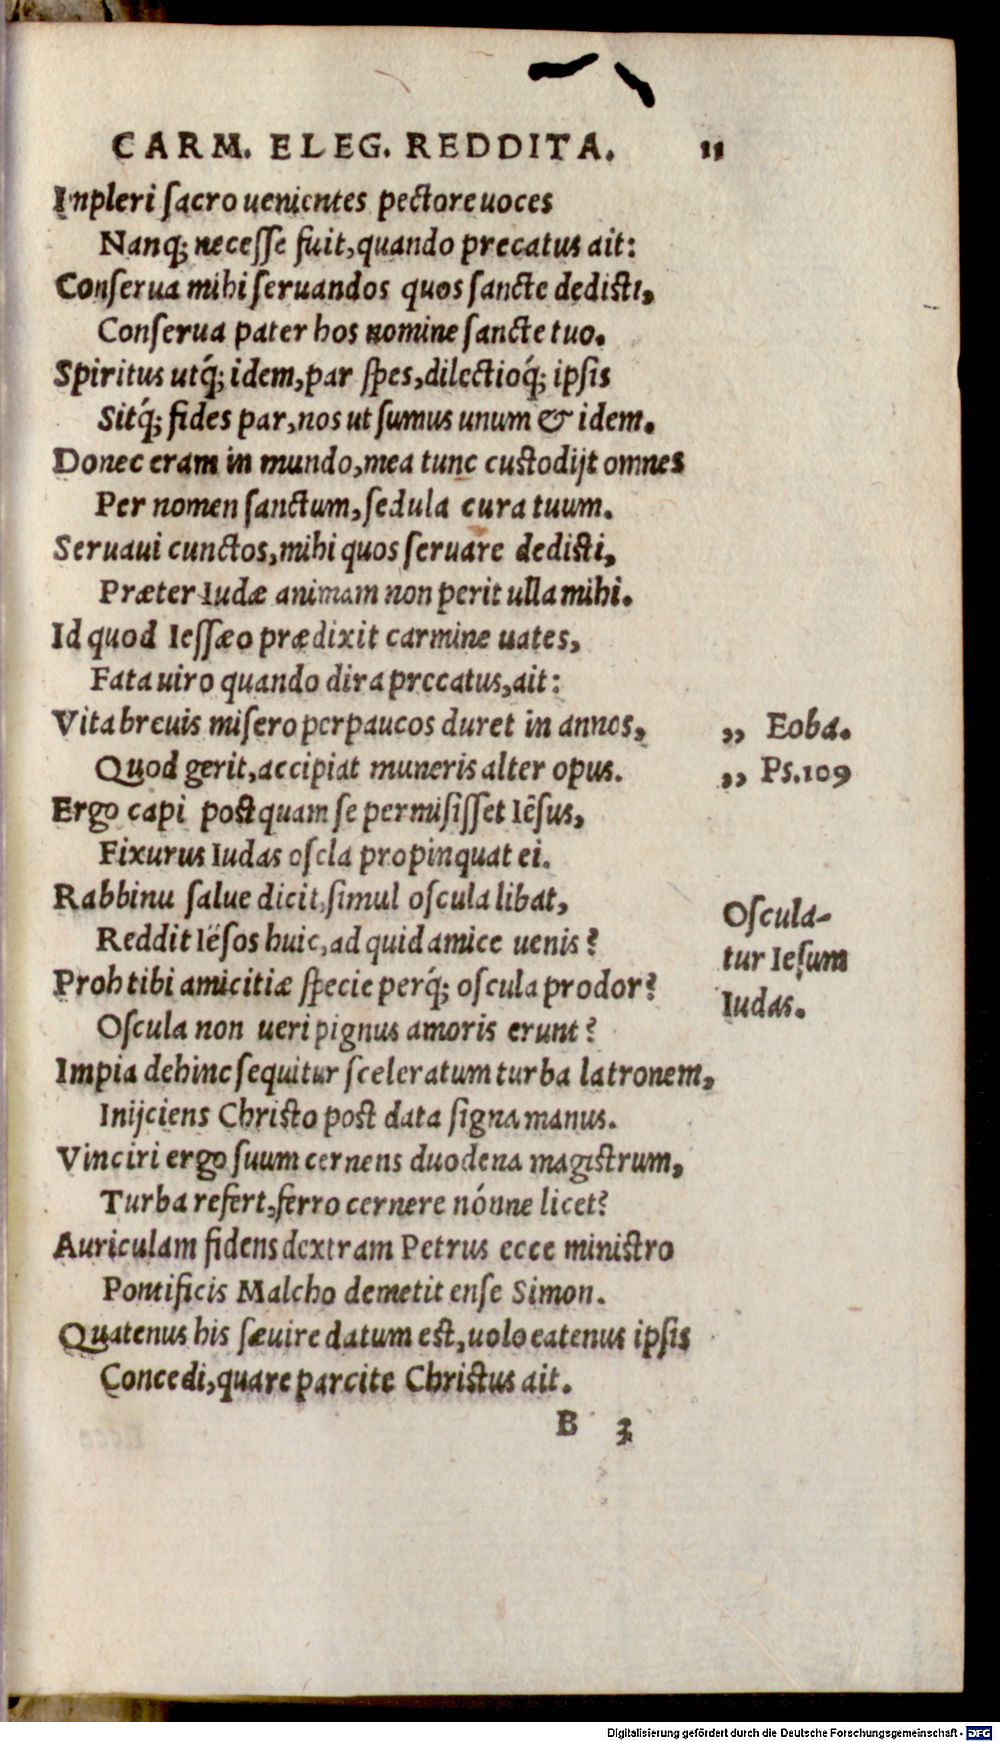 CARM. ELEG. REDDITA. 11
Inpleri ſacro uenientes pectore uoces
Nanq; neceſſe fuit, quando precatus ait:
Conſerua mihi ſeruandos quos ſancte dediſti,
Conſerua pater hos nomine ſancte tuo.
Spiritus utq́; idem, par ſpes, dilectioq́; ipſis
Sitq́; fides par, nos ut ſumus unum & idem.
Donec eram in mundo, mea tunc cuſtodijt omnes
Per nomen ſanctum, ſedula cura tuum.
Seruaui cunctos, mihi quos ſeruare dediſti,
Præter Iudæ animam non perit ulla mihi.
Id quod Ieſſæo prædixit carmine uates,
Fata uiro quando dira precatus, ait:
Vita breuis miſero perpaucos duret in annos, „ Eoba.
Quod gerit, accipiat muneris alter opus. „ Ps.109
Ergo capi poſtquam ſe permiſiſſet Iêſus,
Fixurus Iudas oſcla propinquat ei.
Rabbinu ſalue dicit, ſimul oſcula libat,
Reddit Iëſos huic, ad quid amice uenis?
Proh tibi amicitiæ ſpecie perq́; oſcula prodor?
Oſcula non ueri pignus amoris erunt?
Oſcula-
tur Ieſum
Iudas.
Impia dehinc ſequitur ſceleratum turba latronem,
Inijciens Chriſto poſt data ſigna manus.
Vinciri ergo ſuum cernens duodena magiſtrum,
Turba refert, ferro cernere nónne licet?
Auriculam fidens dextram Petrus ecce miniſtro
Pontificis Malcho demetit enſe Simon.
Quatenus his ſæuire datum eſt, uolo eatenus ipſis
Concedi, quare parcite Chriſtus ait.
B 3
Digitalisierung gefördert durch die Deutsche Forschungsgemeinschaft - DFG